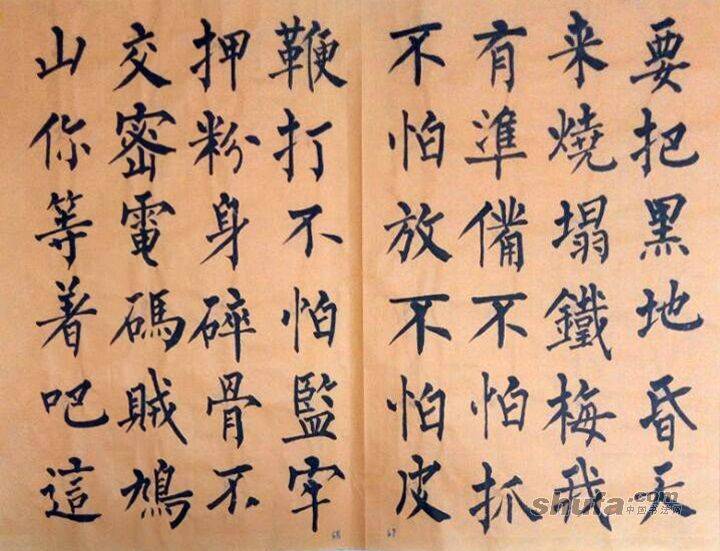 要把黑地昏天
来燒塌鐵梅我
有準備不怕抓
不怕放不怕皮
鞭打不怕監牢
押粉身碎骨不
交密電碼賊鳩
山你等着吧這
68
67
shufa.com
中国书法网